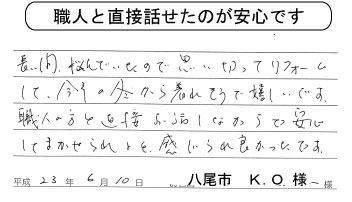 職人と直接話せたのが安心です
長い間、悩んでいたので思い切ってリフォーム
して、今年の冬から着れそうで嬉しいです。
職人の方と直接お話しながらで安心
してまかせられると感じられ良かったです。
平成 23 年 6 月 10 日 八尾市 K.O.様 様